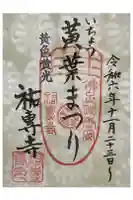 令和六年十一月二十三日
いちょう
黄葉まつり
黄色散光
祐専寺